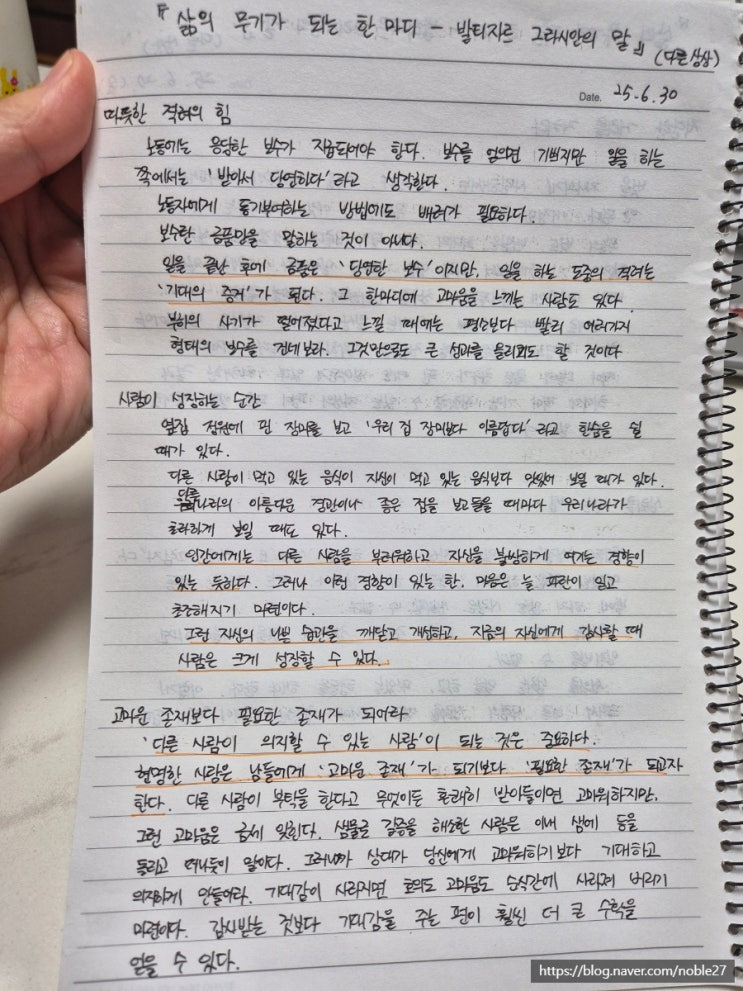 『삶의 무기가 되는 한 마디 - 발타자르 그라시안의 말』
(다른상상)
Date. 25.6.30
따뜻한 격려의 힘
노동에는 응당한 보수가 지급되어야 한다. 보수를 얻으면 기쁘지만 일을 하는
쪽에서는 '받아서 당연하다'라고 생각한다.
노동자에게 동기부여하는 방법에도 배려가 필요하다.
보수란 금품만을 말하는 것이 아니다.
일을 끝난 후에 금품은 '당연한 보수'이지만, 일을 하는 도중의 격려는
'기대의 증거'가 된다. 그 한마디에 고마움을 느끼는 사람도 있다
부하의 사기가 떨어졌다고 느낄 때에는 평소보다 빨리 여러가지
형태의 보수를 건네보라. 그것만으로도 큰 성과를 올리기도 할 것이다
사람이 성장하는 순간
옆집 정원에 핀 장미를 보고 '우리 집 장미보다 아름답다'라고 한숨을 쉴
때가 있다.
다른 사람이 먹고 있는 음식이 자신이 먹고 있는 음식보다 맛있어 보일 때가 있다.
다른
나라의 아름다운 경관이나 좋은 점을 보고들을 때마다 우리나라가
초라하게 보일 때도 있다.
인간에게는 다른 사람을 부러워하고 자신을 불쌍하게 여기는 경향이
있는 듯하다. 그러나 이런 경향이 있는 한, 마음은 늘 파란이 일고
초조해지기 마련이다.
그런 자신의 나쁜 습관을 깨닫고 개선하고, 지금의 자신에게 감사할 때
사람은 크게 성장할 수 있다.
고마운 존재보다 필요한 존재가 되어라
'다른 사람이 의지할 수 있는 사람'이 되는 것은 중요하다.
현명한 사람은 남들에게 '고마운 존재'가 되기보다 '필요한 존재'가 되고자
한다. 다른 사람이 부탁을 한다고 무엇이든 흔쾌히 받아들이면 고마워하지만,
그런 고마움은 금세 잊힌다. 샘물로 갈증을 해소한 사람은 이내 샘에 등을
돌리고 떠나듯이 말이다. 그러니까 상대가 당신에게 고마워하기보다 기대하고
의지하게 만들어라. 기대감이 사라지면 호의도 고마움도 순식간에 사라져 버리기
마련이다. 감사받는 것보다 기대감을 주는 편이 훨씬 더 큰 수확을
얻을 수 있다.
https://blog.naver.com/noble27